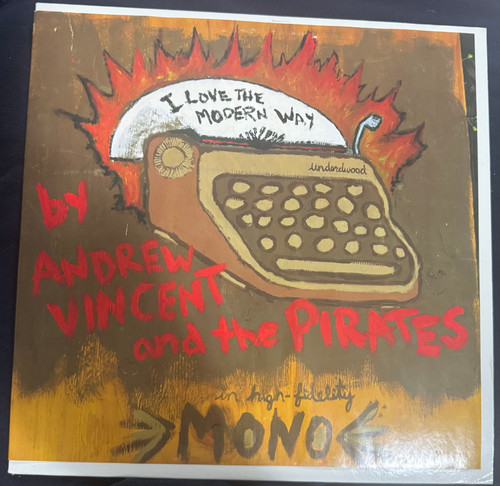 I LOVE THE
MODERN WAY
underwood
by
ANDREW
VINCENT
and the PIRATES
in high-fidelity
MONO